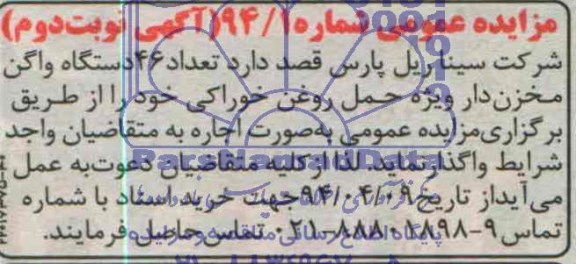 مزایده عمومی شماره ۹۴/۱ (آگهی نوبت دوم)
شرکت سینا ریل پارس قصد دارد تعداد ۴۶ دستگاه واگن
مخزن‌دار ویژه حمل روغن خوراکی خود را از طریق
برگزاری مزایده عمومی به‌صورت اجاره به متقاضیان واجد
شرایط واگذار نماید. لذا از کلیه متقاضیان دعوت به عمل
می‌آید از تاریخ ۹۴/۰۴/۰۹ جهت خرید اسناد با شماره
تماس ۹-۸۸۸۰۱۸۹۸-۰۲۱ تماس حاصل فرمایند.